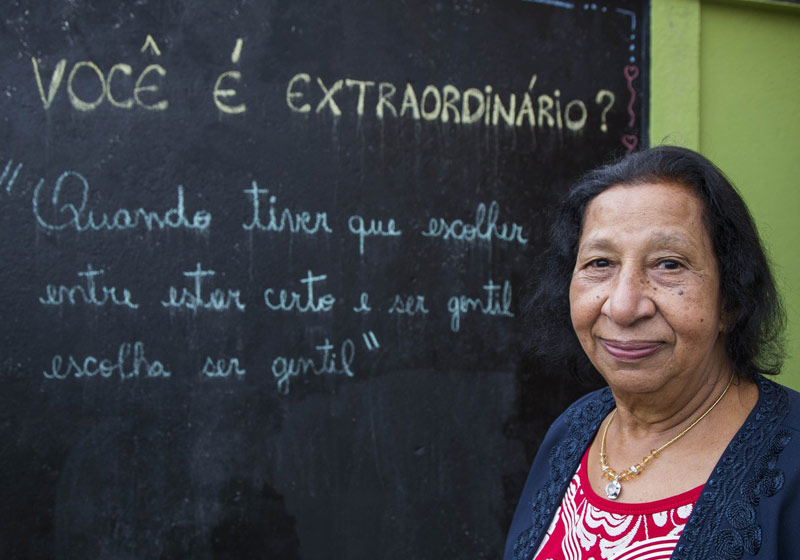 VOCÊ É EXTRAORDINÁRIO?
"Quando tiver que escolher
entre estar certo e ser gentil
escolha ser gentil"